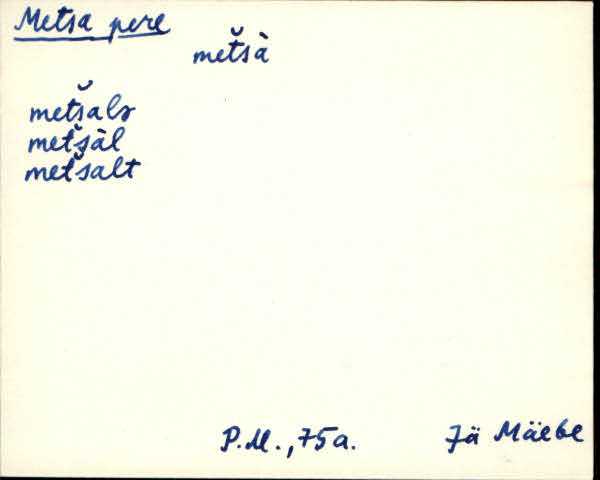 Metsa pere
metsà
metsalə
metsàl
metsalt
P.M., 75a.
Jä Mäebe